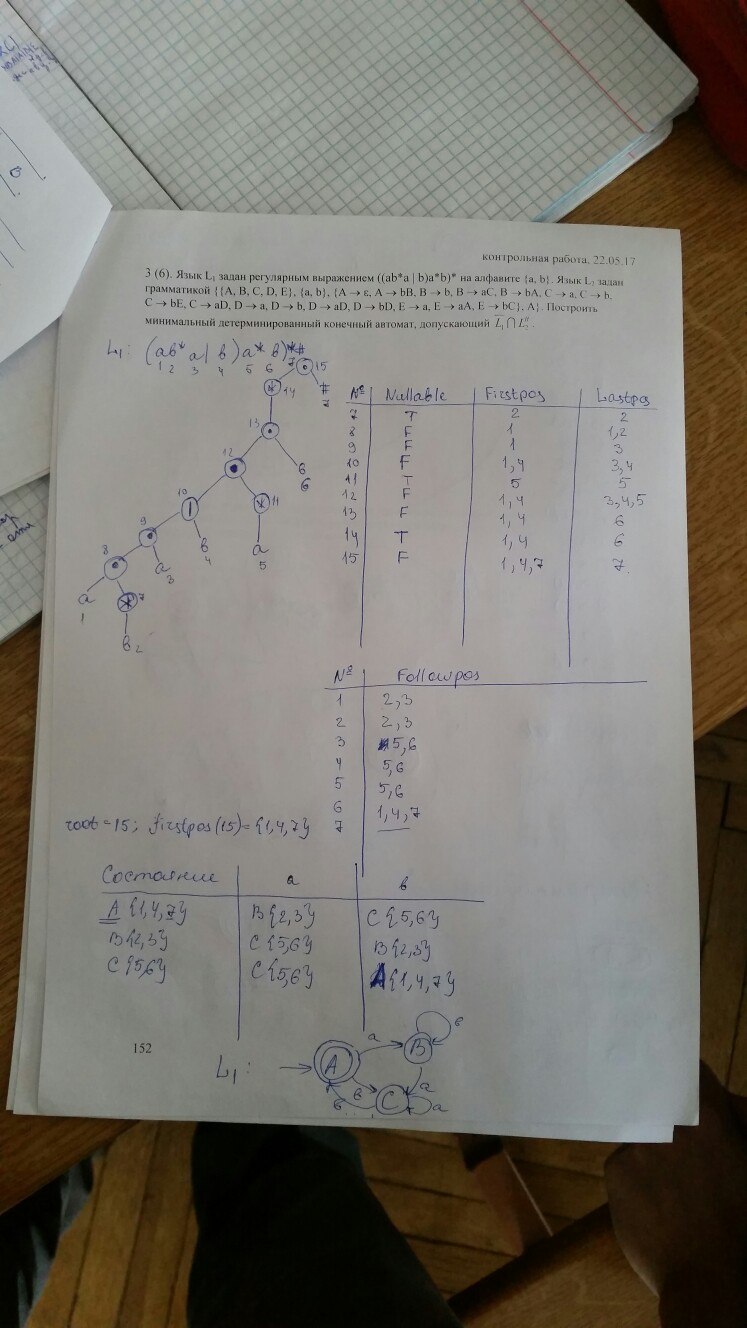 контрольная работа, 22.05.17
3 (6). Язык L₁ задан регулярным выражением ((ab*a | b)a*b)* на алфавите {a, b}. Язык L₂ задан
грамматикой {{A, B, C, D, E}, {a, b}, {A → ε, A → bB, B → b, B → aC, B → bA, C → a, C → b,
C → bE, C → aD, D → a, D → b, D → aD, D → bD, E → a, E → aA, E → bC}, A}. Построить
минимальный детерминированный конечный автомат, допускающий
L₁: (ab* a | b) a* b)*#
1 2 3 4 5 6 7
15
* 14 #
7
13
12 b
6
10 | * 11
9 b
4 a
5
8 a
3
a
1 * 7
b 2
№ Nullable Firstpos Lastpos
7 T 2 2
8 F 1 1,2
9 F 1 3
10 F 1,4 3,4
11 T 5 5
12 F 1,4 3,4,5
13 F 1,4 6
14 T 1,4 6
15 F 1,4,7 7.
№ Followpos
1 2,3
2 2,3
3 5,6
4 5,6
5 5,6
6 1,4,7
7 —
root = 15; firstpos(15) = {1,4,7}
Состояние a b
A {1,4,7} B{2,3} C{5,6}
B{2,3} C{5,6} B{2,3}
C{5,6} C{5,6} A{1,4,7}
152
L₁: A a B b
b b C a a